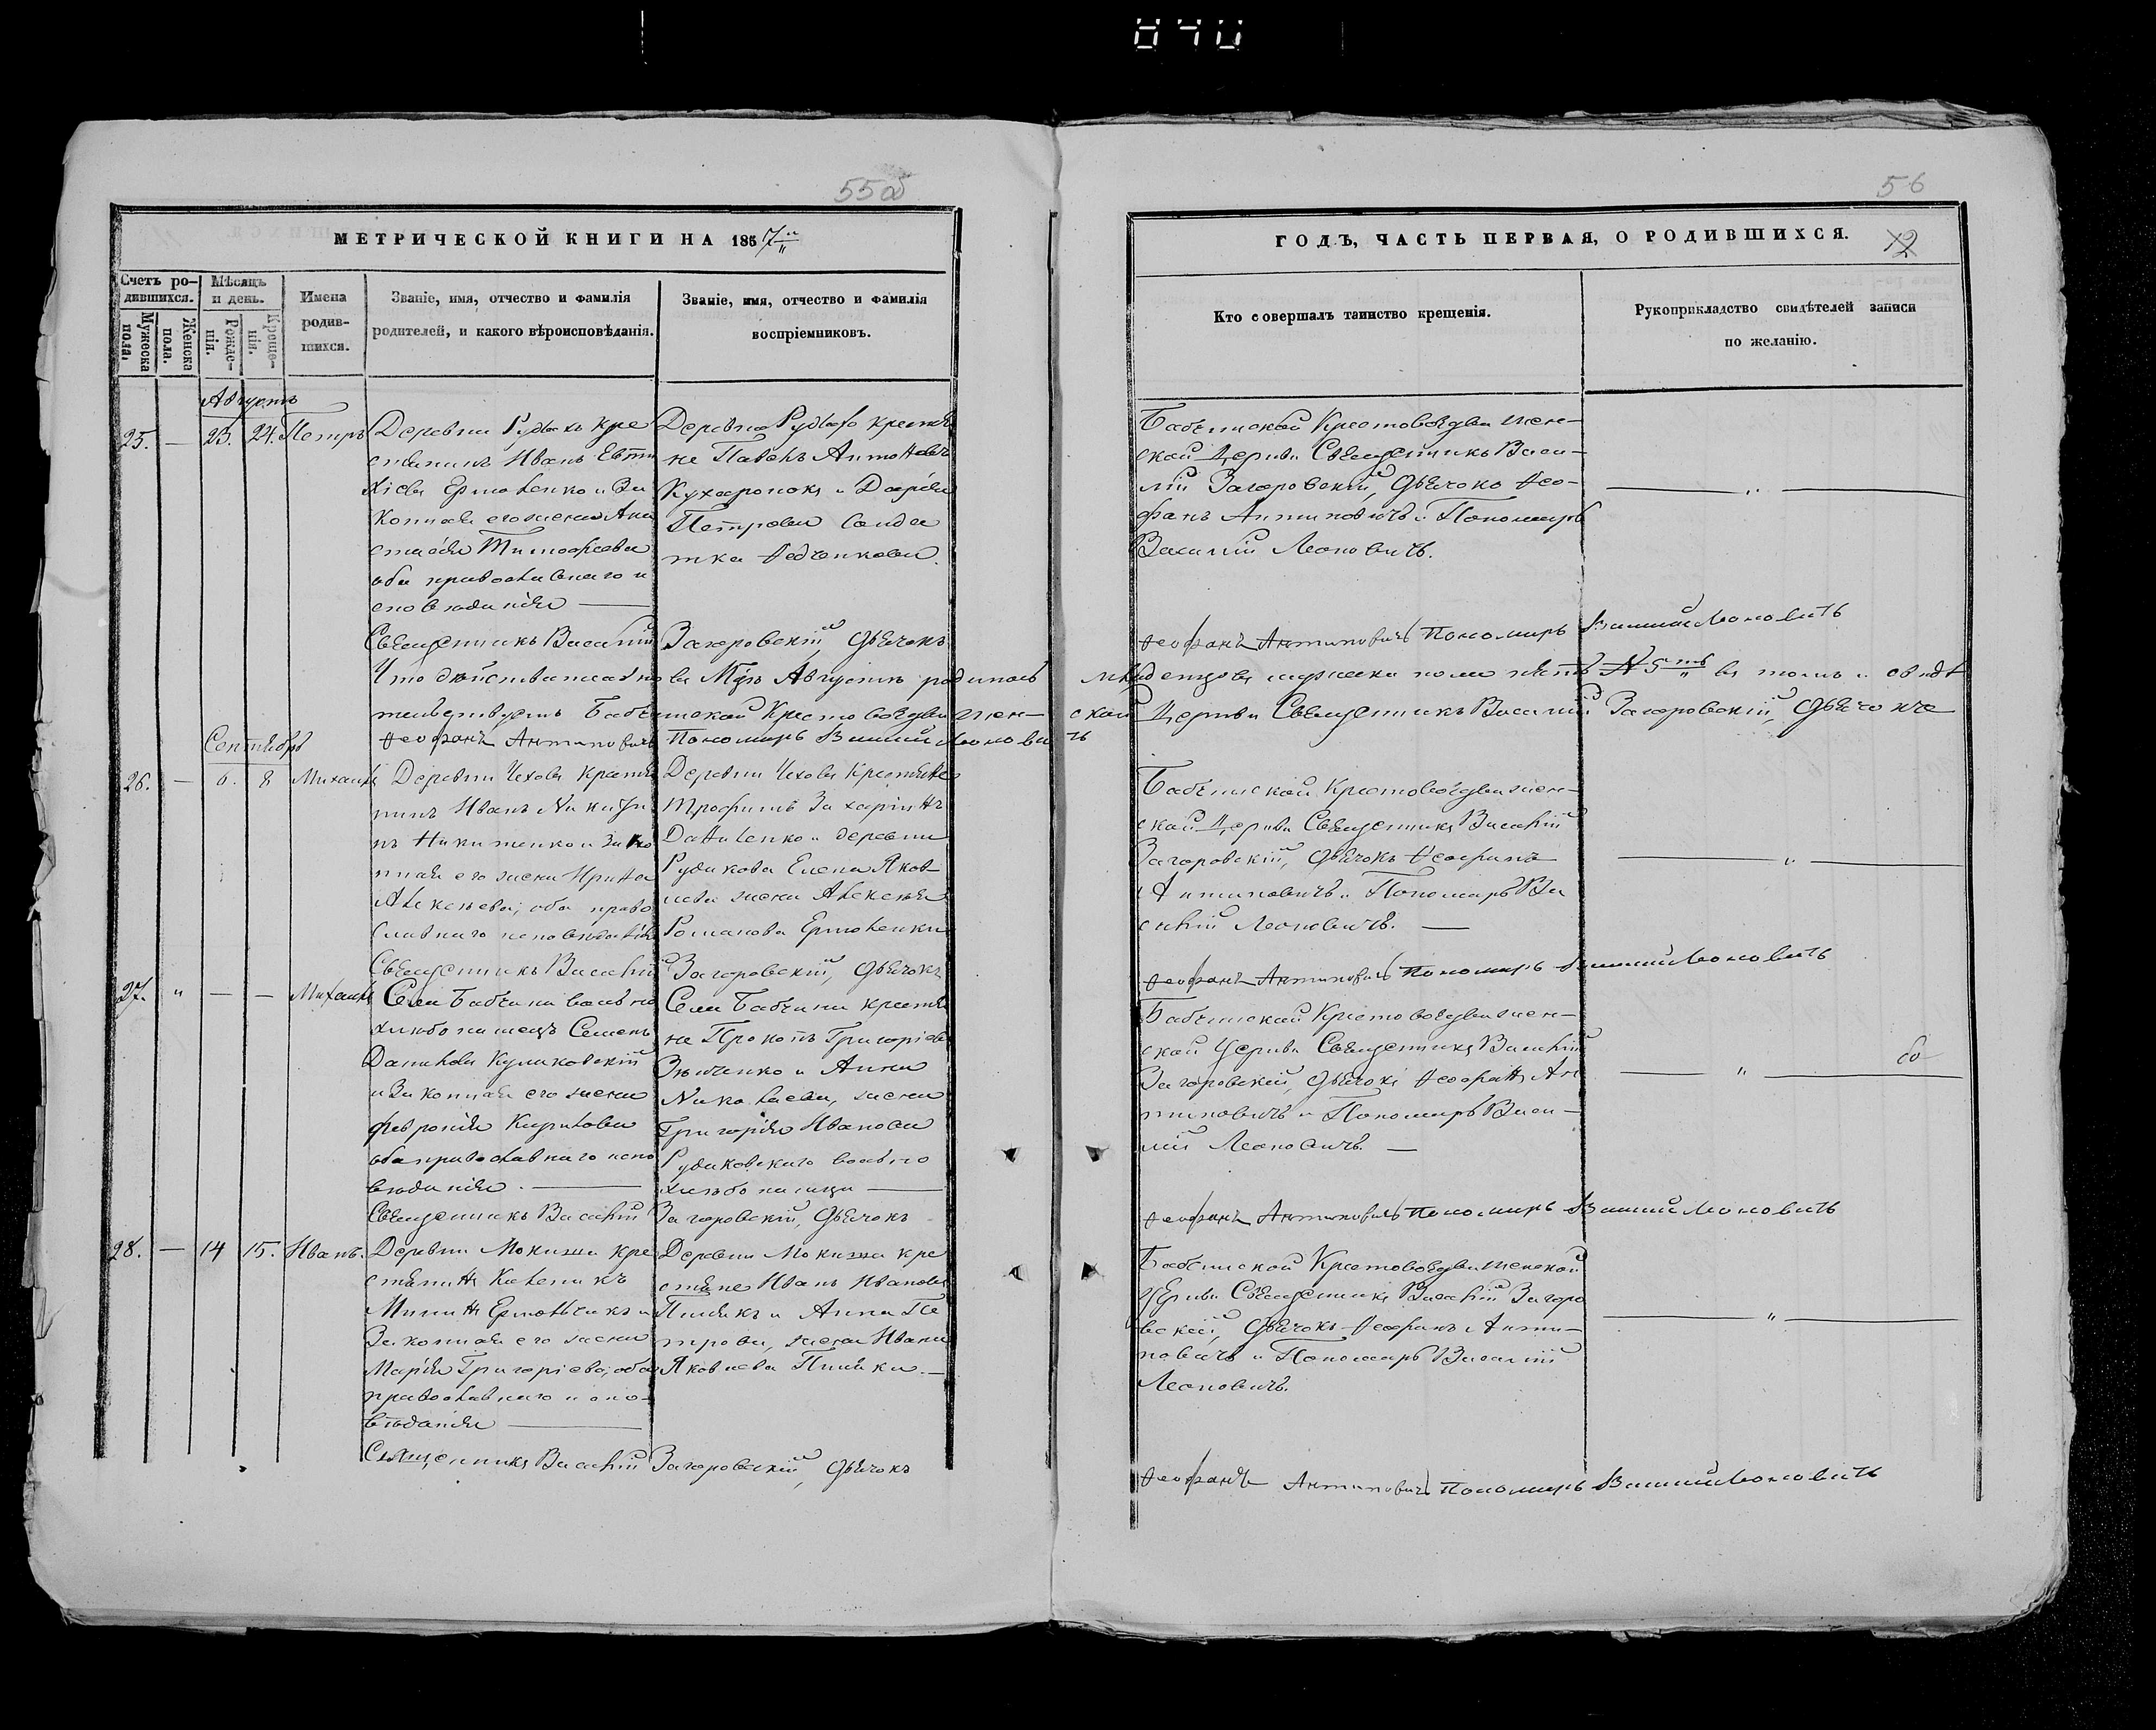 840
55об
56
МЕТРИЧЕСКОЙ КНИГИ НА 1857
ГОДЪ, ЧАСТЬ ПЕРВАЯ, О РОДИВШИХСЯ.
12
Счетъ ро-
дившихся.
Мужеска
пола.
Женска
пола.
Мѣсяцъ
и день.
Рожде-
нія.
Креще-
нія.
Имена
родив-
шихся.
Званіе, имя, отчество и фамилія
родителей, и какого вѣроисповѣданія.
Званіе, имя, отчество и фамилія
воспріемниковъ.
Кто совершалъ таинство крещенія.
Рукоприкладство свидѣтелей записи
по желанію.
Августъ
25. — 23. 24. Петръ
Деревни Рудакъ кре
стьянинъ Иванъ Евти
хіевъ Ермоленко и За
конная его жена Ана
стасія Тимофеева
оба православнаго и
споведанія —
Деревни Рудаковъ крестья
не Павелъ Антоновъ
и Дарія
Петрова солда
тка Федченкова.
Бабчинской Крестовоздвижен-
ской Церкви Священникъ Васи-
лій Загоровскій, Дьячокъ Фео-
фанъ Антиповичъ и Пономарь
Василій Леоновичъ.
— „ —
Священникъ Василій Загоровскій, Дьячокъ
Феофанъ Антиповичъ Пономарь Василій Леоновичъ
Что действительно въ Мцѣ Августѣ родилось младенцовъ мужеска пола пять №5 въ томъ и свидѣ
тельствуетъ Бабчинской Крестовоздвижен- ской Церкви Священникъ Василій Загоровскій, Дьячокъ
Феофанъ Антиповичъ Пономарь Василій Леоновичъ
Сентябрь
26. — 6. 8 Михаилъ
Деревни Чехова крестья
нинъ Иванъ Никити
нъ Никитенко и Зако
нная его жена Ирина
Алексеева, оба право
славнаго исповеданія
Деревни Чехова крестьяне
Трофимъ Захаринъ
Даниленко и деревни
Рудакова Елена Яков-
лева жена Алексея
Романова Ермоленки
Бабчинской Крестовоздвижен-
ской Церкви Священникъ Василій
Загоровскій, Дьячокъ Феофанъ
Антиповичъ и Пономарь Ва
силій Леоновичъ. —
— „ —
Священникъ Василій Загоровскій, Дьячокъ
Феофанъ Антиповичъ Пономарь Василій Леоновичъ
27. „ — — Михаилъ
Села Бабчина вольно
хлебопашецъ Семенъ
Даниловъ Куликовскій
и Законная его жена
Февронія Кирилова
оба православнаго испо
веданія. —
Села Бабчина крестья
не Прокопъ Григоріевъ
Зинченко и Анна
Николаева, жена
Григорія Иванова
Рудаковскаго вольно
хлебопашца —
Бабчинской Крестовоздвижен-
ской Церкви Священникъ Василій
Загоровскій, Дьячокъ Феофанъ Ан
типовичъ и Пономарь Васи-
лій Леоновичъ. —
— „ —
Священникъ Василій Загоровскій, Дьячокъ
Феофанъ Антиповичъ Пономарь Василій Леоновичъ
28. — 14 15. Иванъ.
Деревни Мокиша кре
стьянинъ Каленикъ
Мининъ Ермольчикъ и
Законная его жена
Марія Григоріева, оба
православнаго испо-
веданія —
Деревни Мокиша кре
стьяне Иванъ Ивановъ
и Анна Пе
трова, жена Ивана
Яковлева
Бабчинской Крестовоздвиженской
Церкви Священникъ Василій Загоро
вскій, Дьячокъ Феофанъ Анти-
повичъ и Пономарь Василій
Леоновичъ.
— „ —
Священникъ Василій Загоровскій, Дьячокъ
Феофанъ Антиповичъ Пономарь Василій Леоновичъ